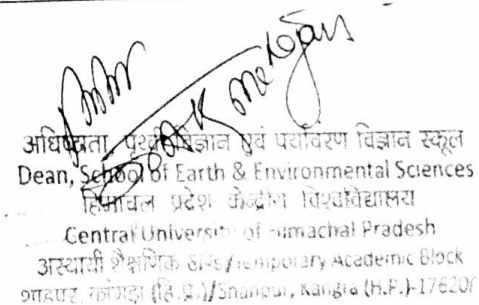 अधिष्ठाता, पृथ्वी विज्ञान एवं पर्यावरण विज्ञान स्कूल
Dean, School of Earth & Environmental Sciences
हिमाचल प्रदेश केन्द्रीय विश्वविद्यालय
Central University of Himachal Pradesh
अस्थायी शैक्षणिक /Temporary Academic Block
शाहपुर, कांगड़ा (हि.प्र.)/Shahpur, Kangra (H.P.)-17620